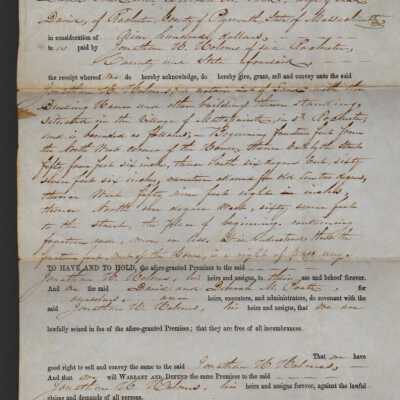 Davis, of Rochester County of Plymouth State of Massachusetts
in consideration of hundred dollars,
to us paid by Jonathan H. Holmes of sd Rochester,
County and State aforesaid
the receipt whereof we do hereby acknowledge, do hereby give, grant, sell and convey unto the said
Jonathan H. Holmes, a certain lot of Land with the
Dwelling House and other buildings there standing,
Situated in the Village of Mattapoisett, in sd Rochester,
and is bounded as follows, - Beginning fourteen feet from
the North West corner of the House, thence by the street
fifty four feet six inch, thence South six degrees East, sixty
seven feet six inches,
thence West fifty nine feet eight inches,
thence North one degree West, sixty seven feet
to the street, the place of beginning, containing
fourteen rods, more or less.
fourteen feet, west of the House, is a right of way.
TO HAVE AND TO HOLD, the afore-granted Premises to the said
Jonathan H. Holmes, his heirs and assigns, to their use and behoof forever.
And we the said David and Deborah M. for
ourselves, our heirs, executors, and administrators, do covenant with the
said Jonathan H. Holmes, his heirs and assigns, that we are
lawfully seized in fee of the afore-granted Premises; that they are free of all incumbrances.
That we have
good right to sell and convey the same to the said Jonathan H. Holmes,
And that we will WARRANT AND DEFEND the same Premises to the said
Jonathan H. Holmes, his heirs and assigns forever, against the lawful
claims and demands of all persons.